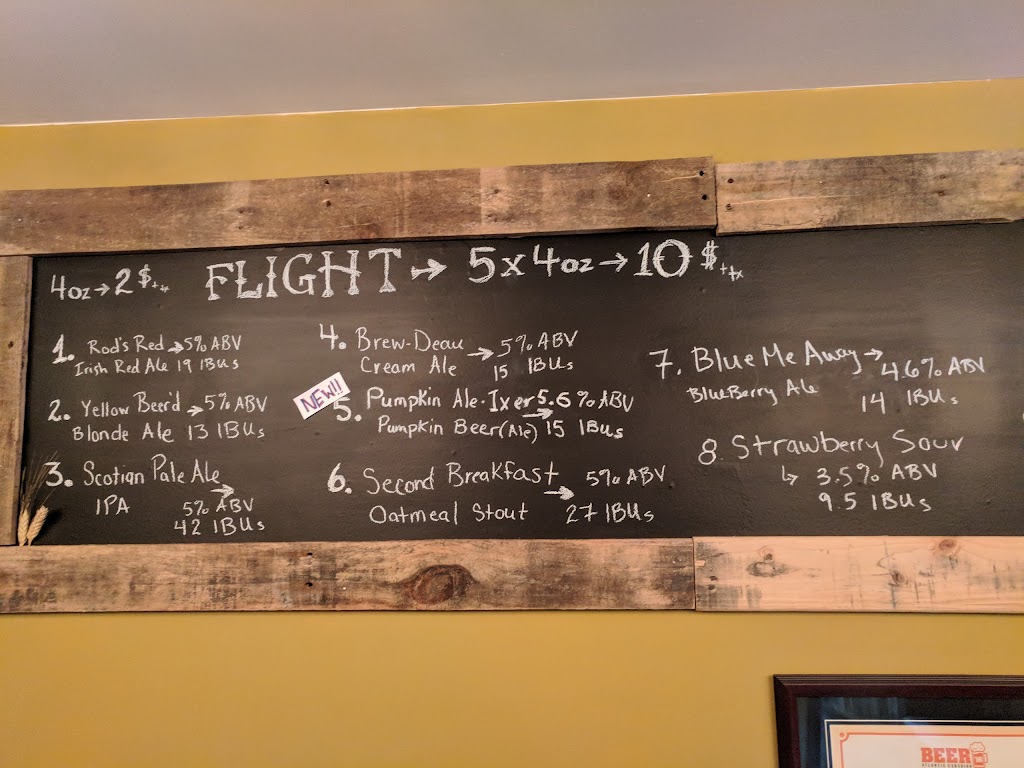 4oz → 2$ + tx
FLIGHT → 5 x 4oz → 10$ + tx
1. Rod's Red → 5% ABV
Irish Red Ale 19 IBUs
2. Yellow Beer'd → 5% ABV
Blonde Ale 13 IBUs
3. Scotian Pale Ale →
IPA 5% ABV
42 IBUs
4. Brew-Deau → 5% ABV
Cream Ale 15 IBUs
NEW!!
5. Pumpkin Ale-Ixer 5.6% ABV →
Pumpkin Beer (Ale) 15 IBUs
6. Second Breakfast → 5% ABV
Oatmeal Stout 27 IBUs
7. Blue Me Away → 4.6% ABV
BlueBerry Ale 14 IBUs
8 Strawberry Sour
↳ 3.5% ABV
9.5 IBUs
BEER